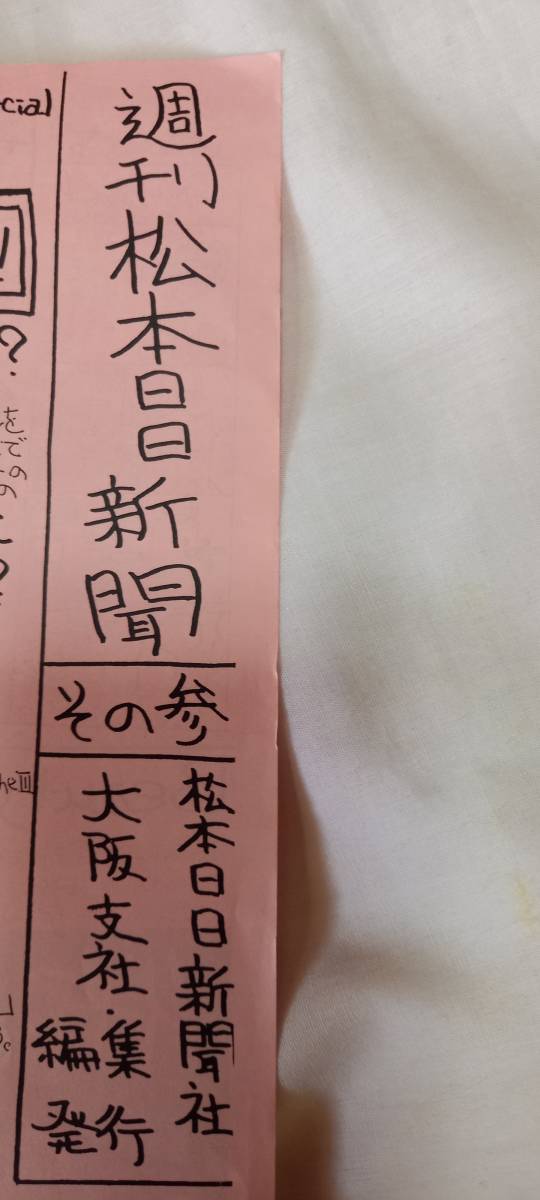 週刊松本日日新聞
その参
松本日日新聞社
大阪支社・編集
発行
cial
?